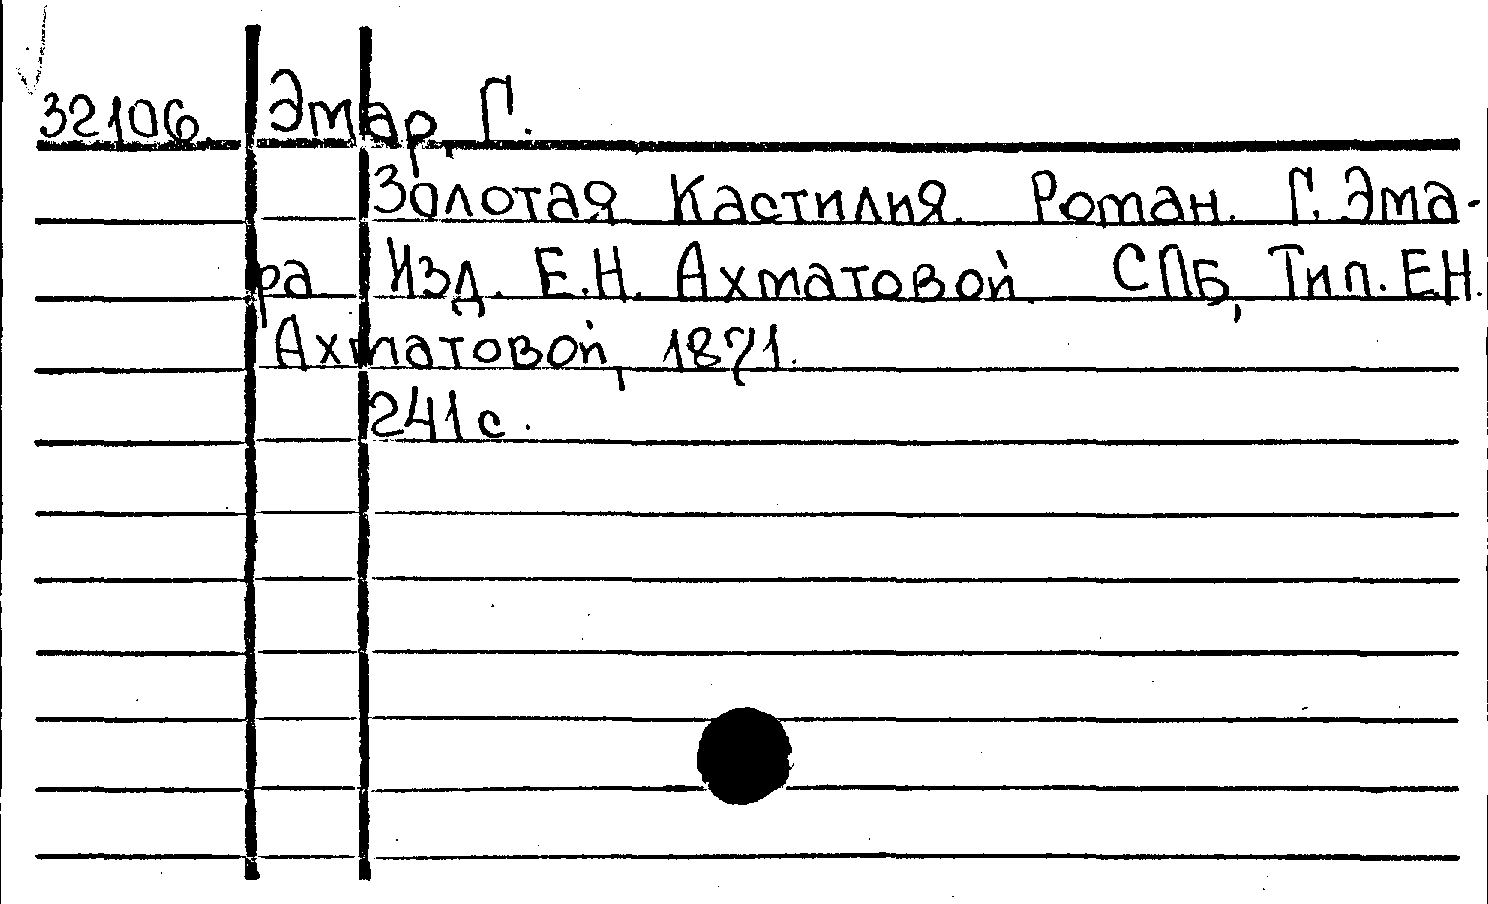 32106 Эмар, Г.
Золотая Кастилия. Роман. Г. Эма-
ра Изд. Е.Н. Ахматовой. СПБ, Тип. Е.Н.
Ахматовой, 1871.
241 с.